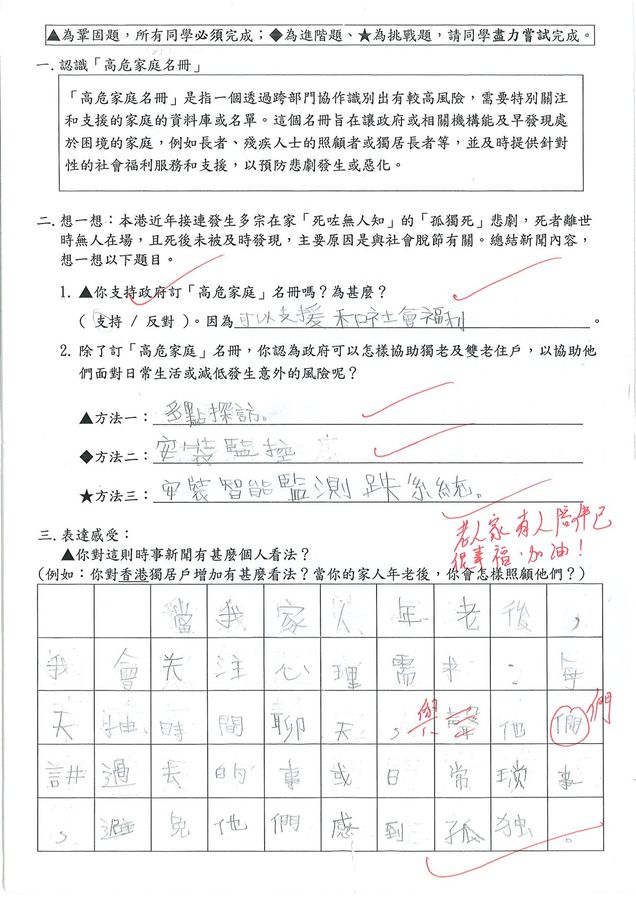 ▲為鞏固題,所有同學必須完成;◆為進階題、★為挑戰題,請同學盡力嘗試完成。
一. 認識「高危家庭名冊」
「高危家庭名冊」是指一個透過跨部門協作識別出有較高風險,需要特別關注
和支援的家庭的資料庫或名單。這個名冊旨在讓政府或相關機構能及早發現處
於困境的家庭,例如長者、殘疾人士的照顧者或獨居長者等,並及時提供針對
性的社會福利服務和支援,以預防悲劇發生或惡化。
二. 想一想:本港近年接連發生多宗在家「死咗無人知」的「孤獨死」悲劇,死者離世
時無人在場,且死後未被及時發現,主要原因是與社會脫節有關。總結新聞內容,
想一想以下題目。
1. ▲你支持政府訂「高危家庭」名冊嗎?為甚麼?
(支持 / 反對)。因為可以支援和社會福利。
2. 除了訂「高危家庭」名冊,你認為政府可以怎樣協助獨老及雙老住戶,以協助他
們面對日常生活或減低發生意外的風險呢?
▲方法一:多點探訪。
◆方法二:安裝監控
★方法三:安裝智能監測跌系統。
老人家有人陪伴已
很幸福,加油!
三. 表達感受:
▲你對這則時事新聞有甚麼個人看法?
(例如:你對香港獨居戶增加有甚麼看法?當你的家人年老後,你會怎樣照顧他們?)
當我家人年老後,
我會关注心理需求:每
天抽時間聊天,與聲他們們
講過去的事或日常瑣事
,避免他們感到孤独。